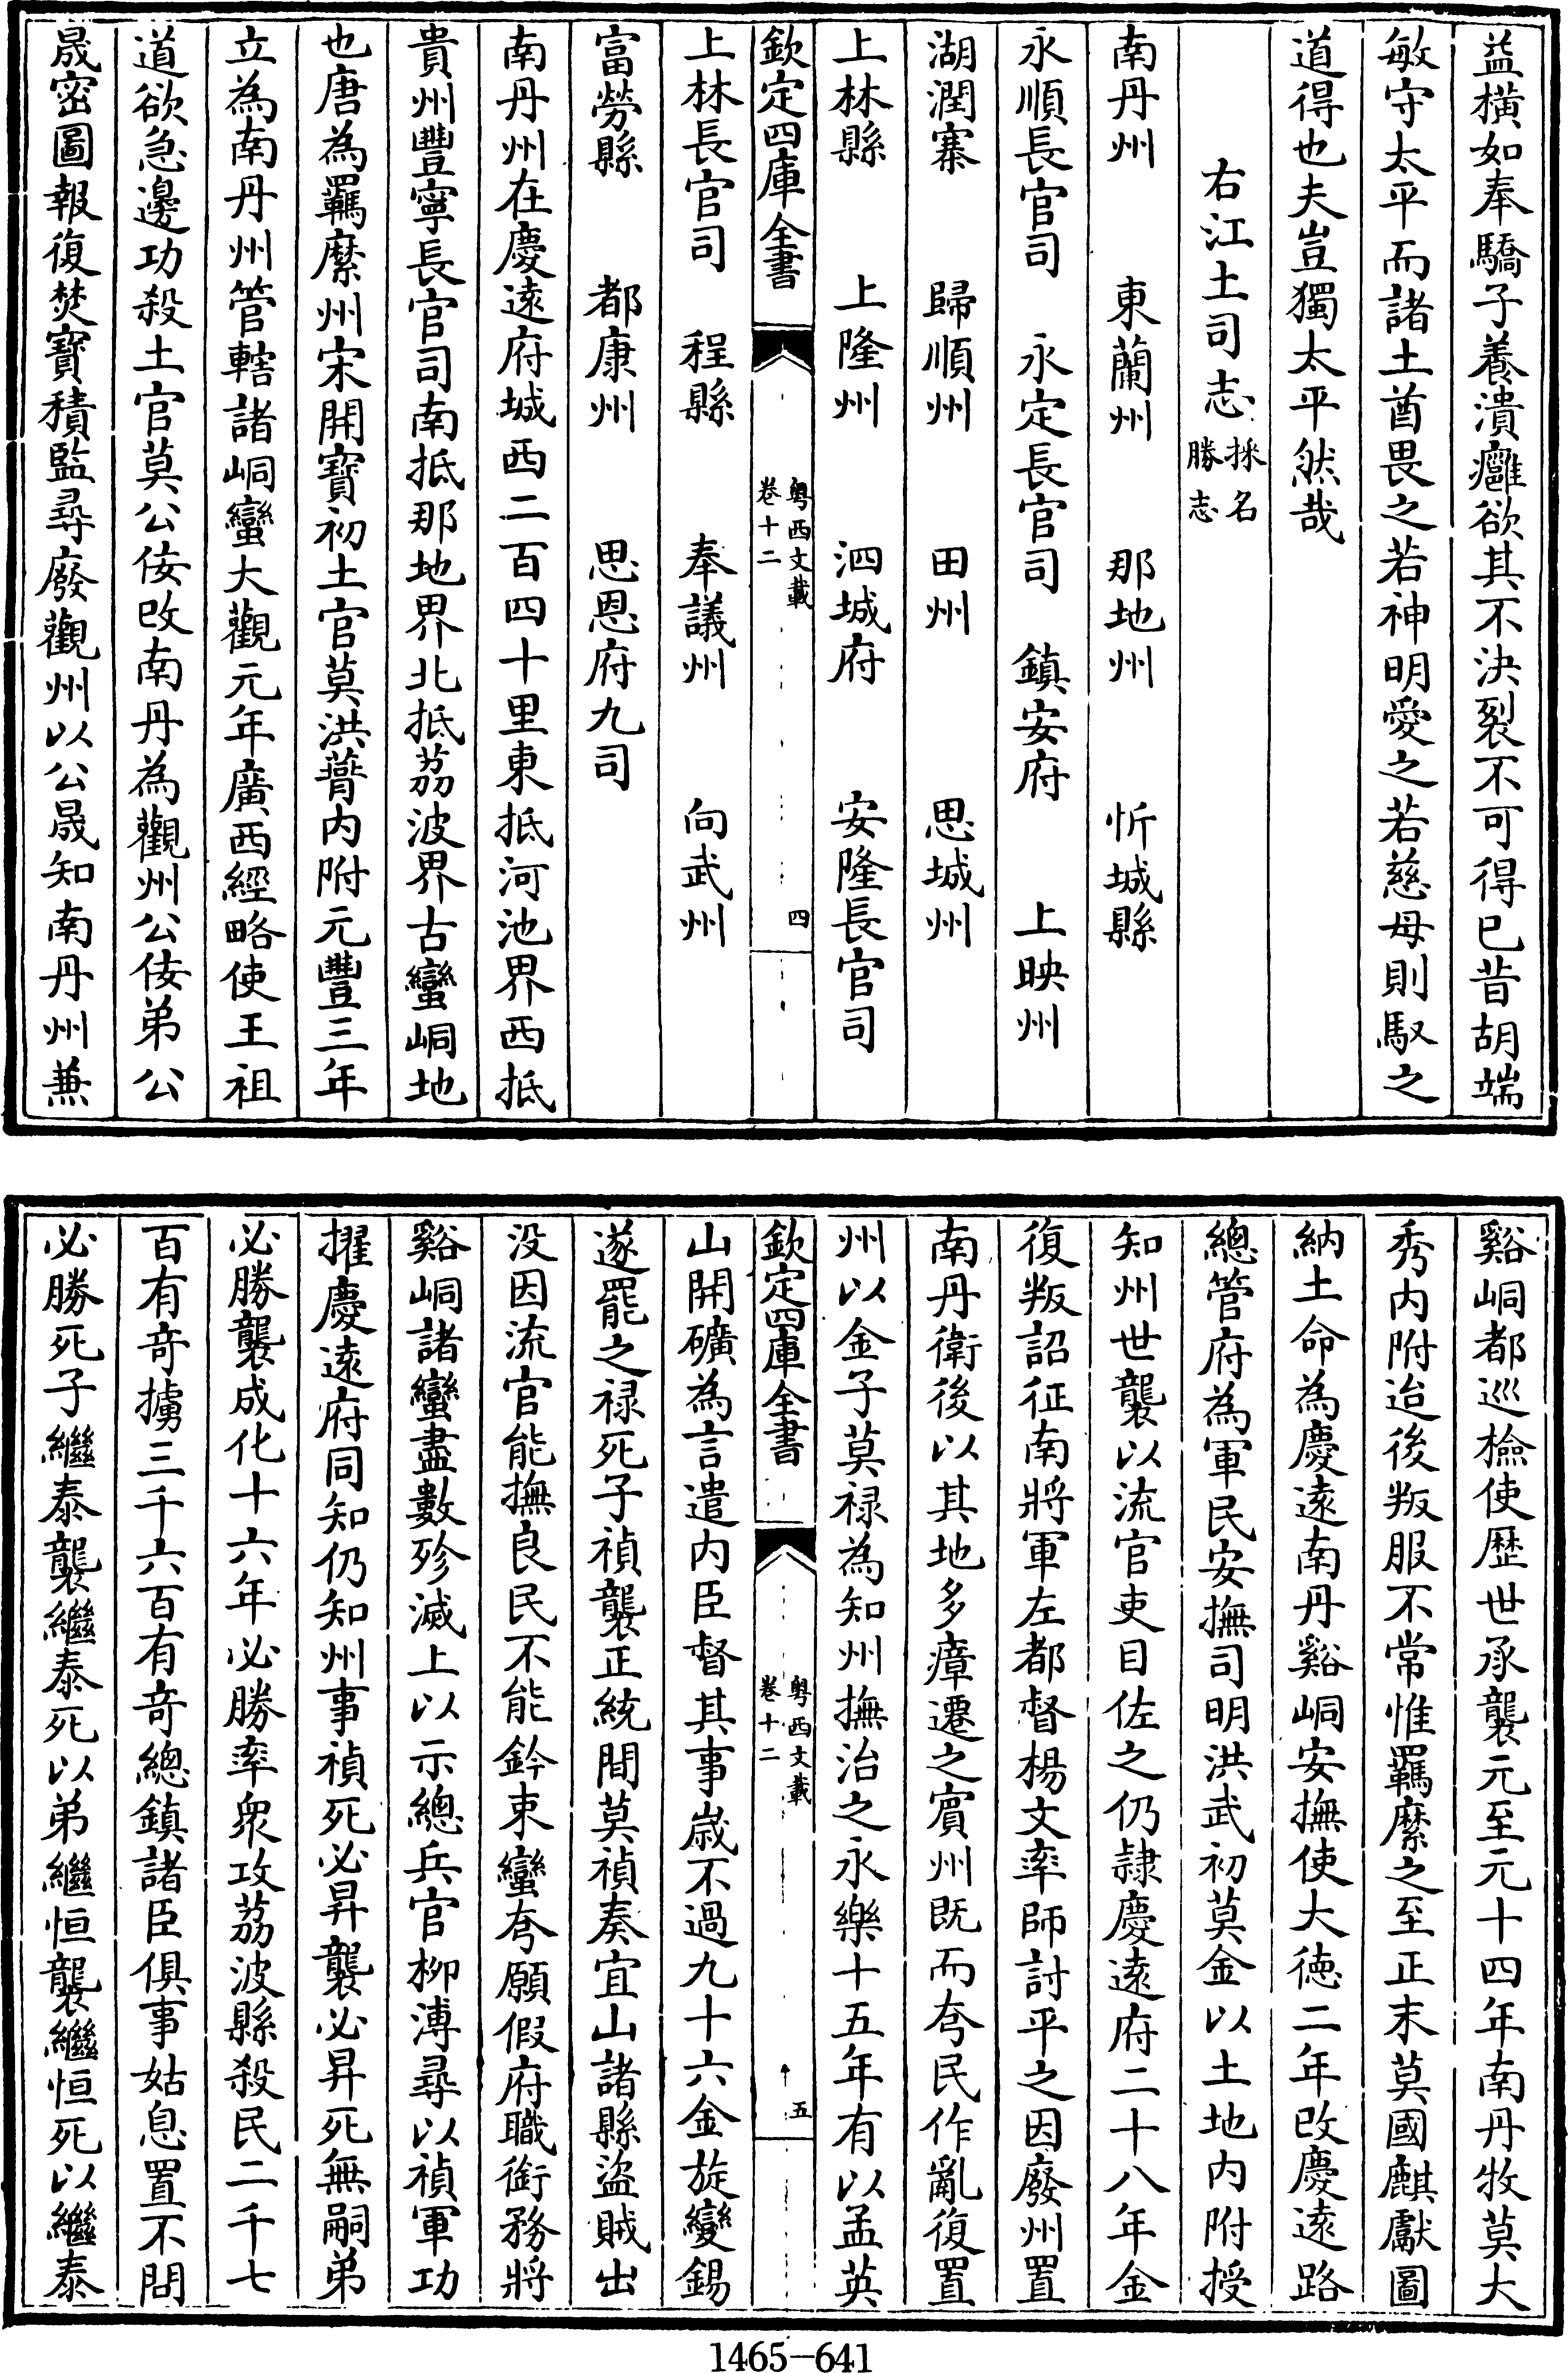 益横如奉驕子養潰癰欲其不決裂不可得已昔胡端
敏守太平而諸土酋畏之若神明愛之若慈母則馭之
道得也夫豈獨太平然哉
右江土司志採名勝志
南丹州 東蘭州 那地州 忻城縣
永順長官司 永定長官司 鎮安府 上映州
湖潤寨 歸順州 田州 思城州
上林縣 上隆州 泗城府 安隆長官司
欽定四庫全書 粤西文載 卷十二 四
上林長官司 程縣 奉議州 向武州
富勞縣 都康州 思恩府九司
南丹州在慶遠府城西二百四十里東抵河池界西抵
貴州豐寧長官司南抵那地界北抵荔波界古蠻峒地
也唐為羈縻州宋開寶初土官莫洪䔾内附元豐三年
立為南丹州管轄諸峒蠻大觀元年廣西經略使王祖
道欲急邊功殺土官莫公佞改南丹為觀州公佞弟公
晟密圖報復焚寶積監尋廢觀州以公晟知南丹州兼
谿峒都巡檢使歴世承襲元至元十四年南丹牧莫大
秀内附迨後叛服不常惟羈縻之至正末莫國麒獻圖
納土命為慶遠南丹谿峒安撫使大徳二年改慶遠路
總管府為軍民安撫司明洪武初莫金以土地内附授
知州世襲以流官吏目佐之仍隷慶遠府二十八年金
復叛詔征南將軍左都督楊文率師討平之因廢州置
南丹衛後以其地多瘴遷之賓州既而夸民作亂復置
州以金子莫禄為知州撫治之永樂十五年有以孟英
欽定四庫全書 粤西文載 卷十二 五
山開礦為言遣内臣督其事嵗不過九十六金旋變錫
遂罷之禄死子禎襲正統間莫禎奏宜山諸縣盗賊出
没因流官能撫良民不能鈐束蠻夸願假府職銜務將
谿峒諸蠻盡數殄滅上以示總兵官柳溥尋以禎軍功
擢慶遠府同知仍知州事禎死必昇襲必昇死無嗣弟
必勝襲成化十六年必勝率衆攻荔波縣殺民二千七
百有奇擄三千六百有奇總鎮諸臣俱事姑息置不問
必勝死子繼泰襲繼泰死以弟繼恒襲繼恒死以繼泰
1465-641